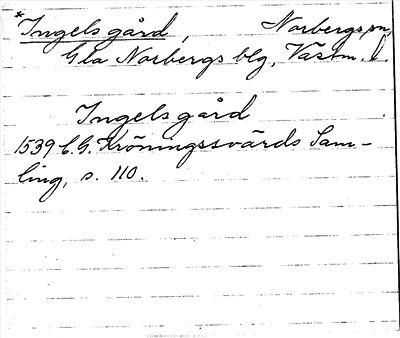 *Ingelsgård, Norbergs sn,
Gla Norbergs blg, Västm. l.
Ingelsgård
1539 C.G. Kröningssvärds Sam-
ling, s. 110.